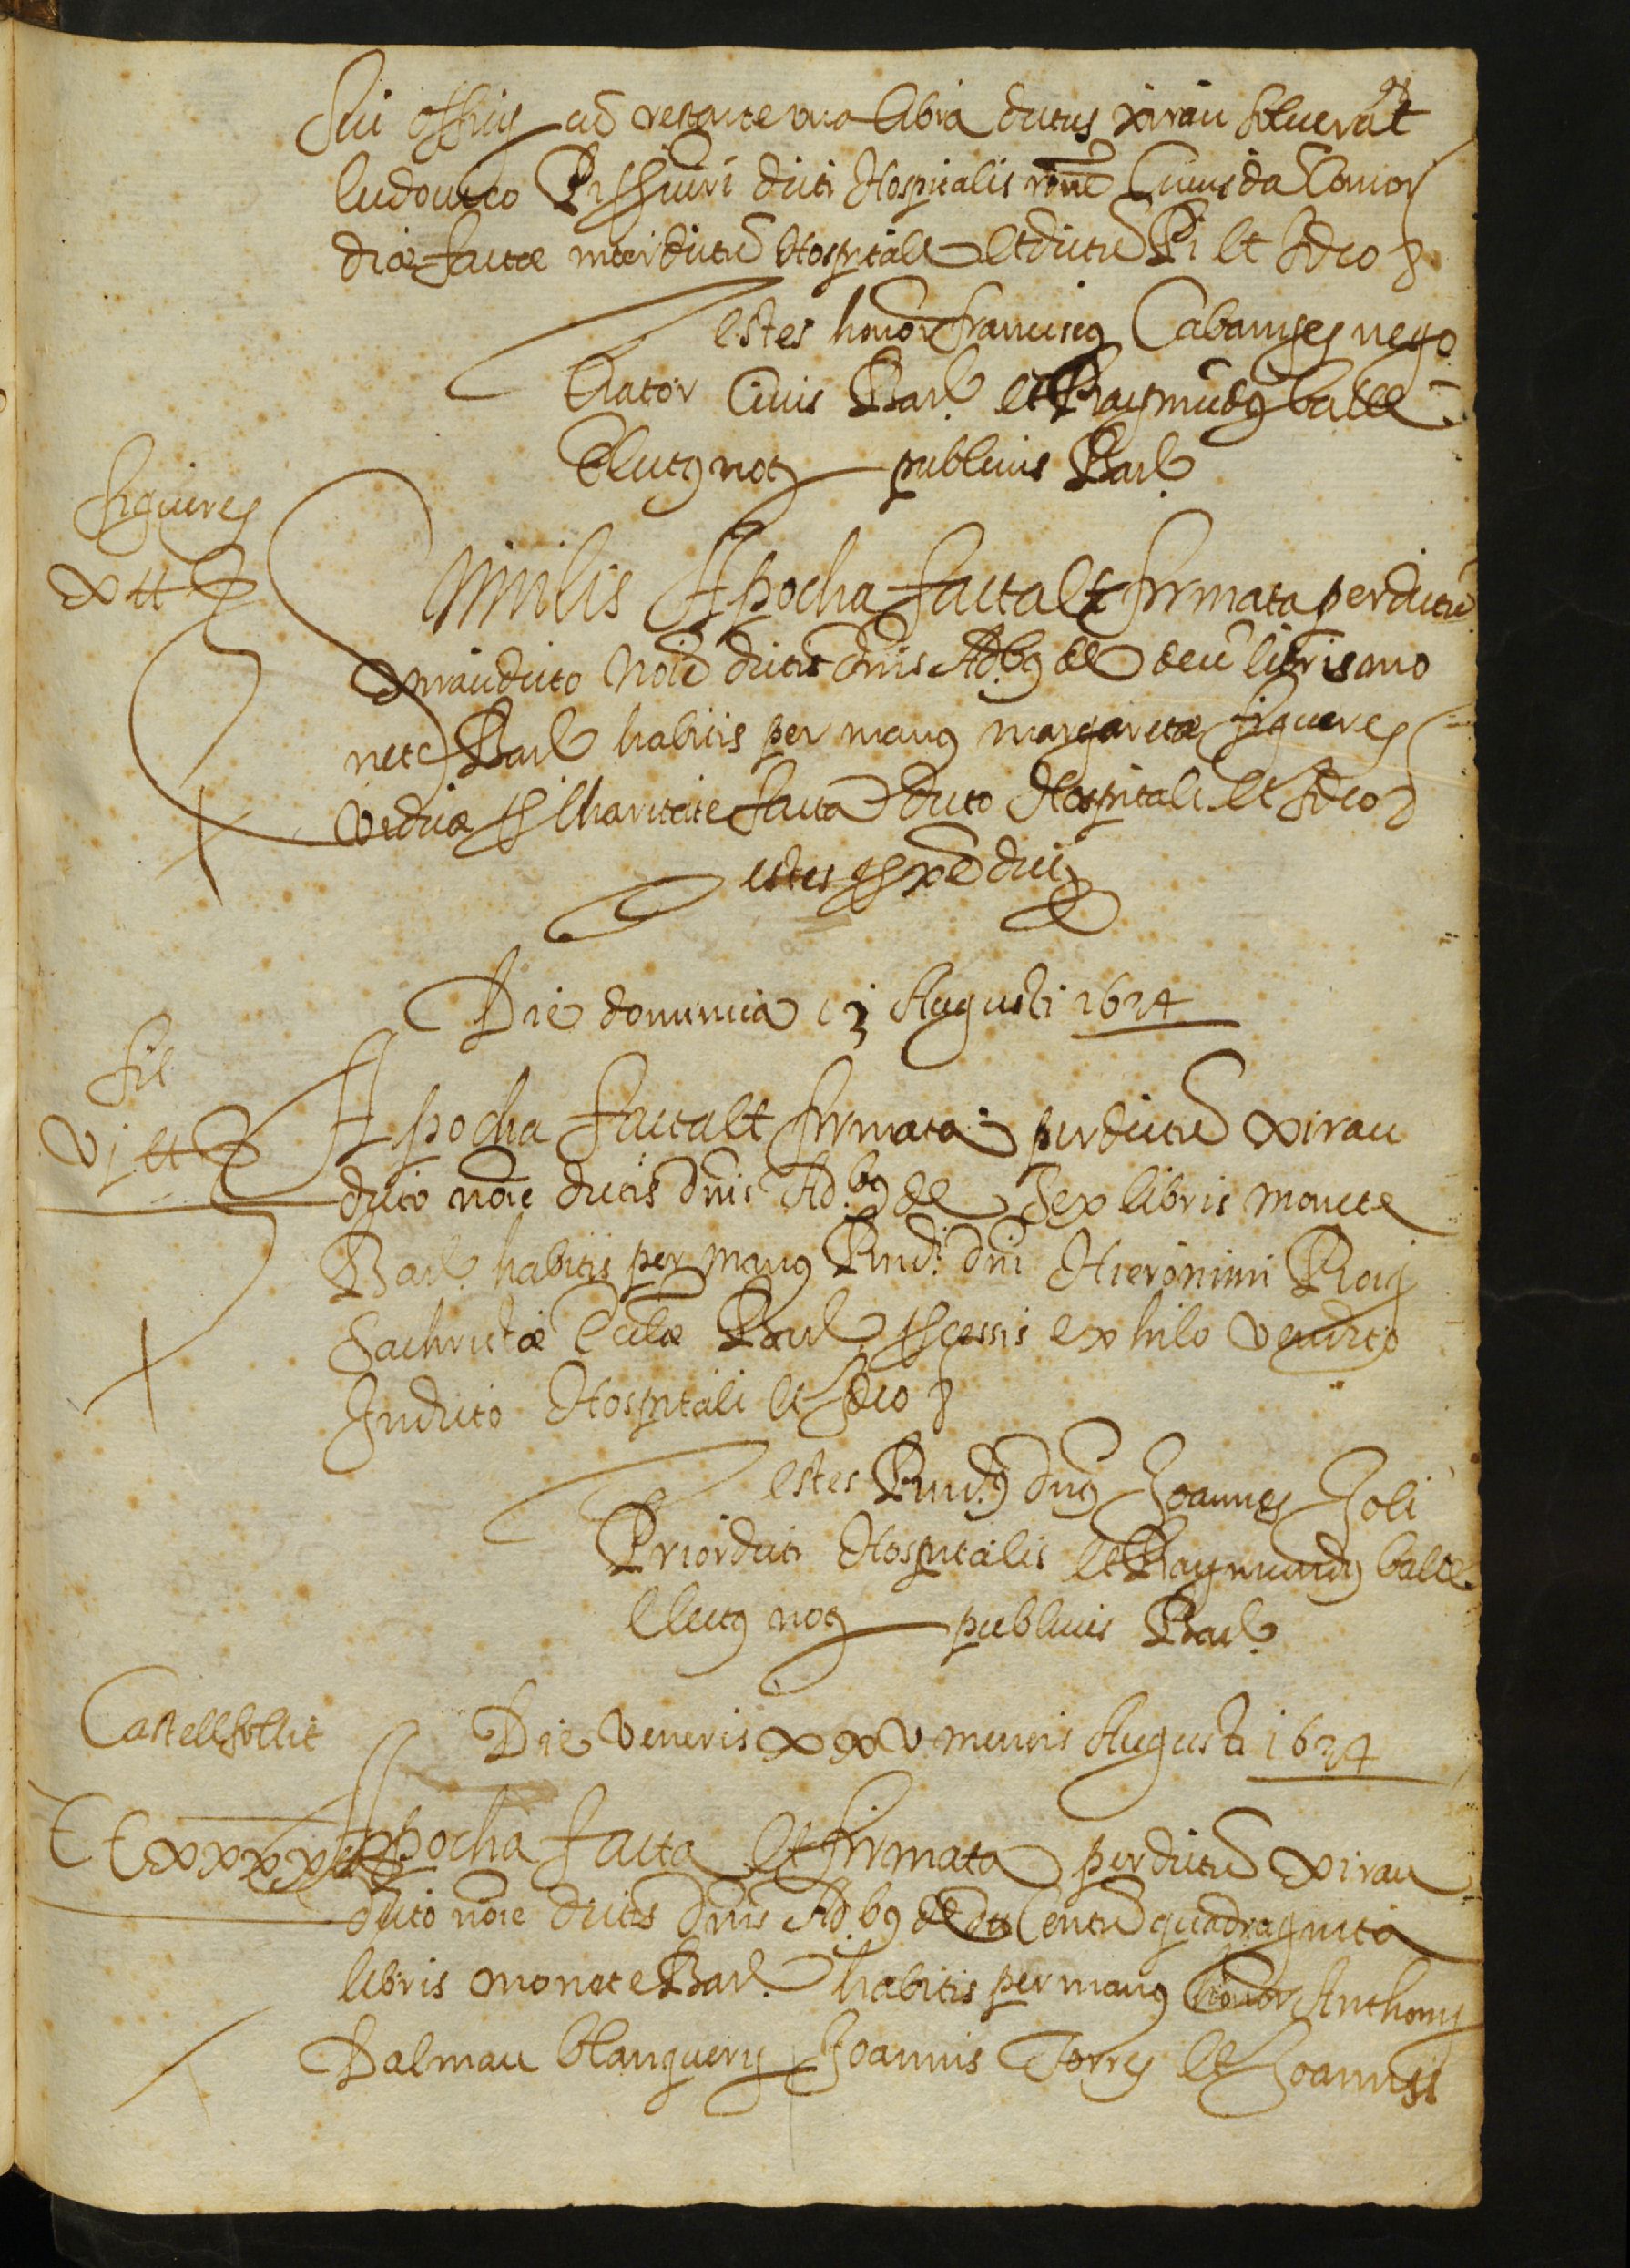 sui offitij cũ restante una libra dictus xirau soluerat
ludovico Pi dicti Hospitalis rõne Cuiusdã Concor
diæ factæ inter dictũ Hospitale et dictũ Pi et Ideo
Testes honor franciscus Cabanyes nego
tiator Civis Bar. et Raymũdus batlle
Clicus not publicus Bar.
figueres
x ll
Similis Apocha facta et firmata per dictũ
xirau dicto Noĩe dictis dñis Adbus de decẽ libris mo
nete Bar. habitis per manus margaritæ figueres
viduæ charitate facta dicto Hospitali et Ideo
Testes dicti
Die dominica 13 Augusti 1624
fil
vj ll
Apocha facta et firmata per dictũ xirau
dicto noĩe dictis dñis Ad.bus de Sex libris monete
Bar. habitis per manus Rnd.i dñi Hieronimi Roig
Sachristæ Eccłæ Bar. ex filo vendito
In dicto Hospitali et Ideo
Testes Rnd.us dñus Joannes Joli
Prior dicti Hospitalis et Raymundus batlle
Clicus not publicus Bar.
Castellfollit
Die Veneris xxv mensis Augusti 1624
CCxxxx ll
Apocha facta et firmata per dictũ xirau
dicto noĩe dictis dñis Ad.bus de Centũ quadraginta
libris monete Bar. habitis per manus honor Anthonij
Dalmau blanquerij Joannis Torres et Joannis